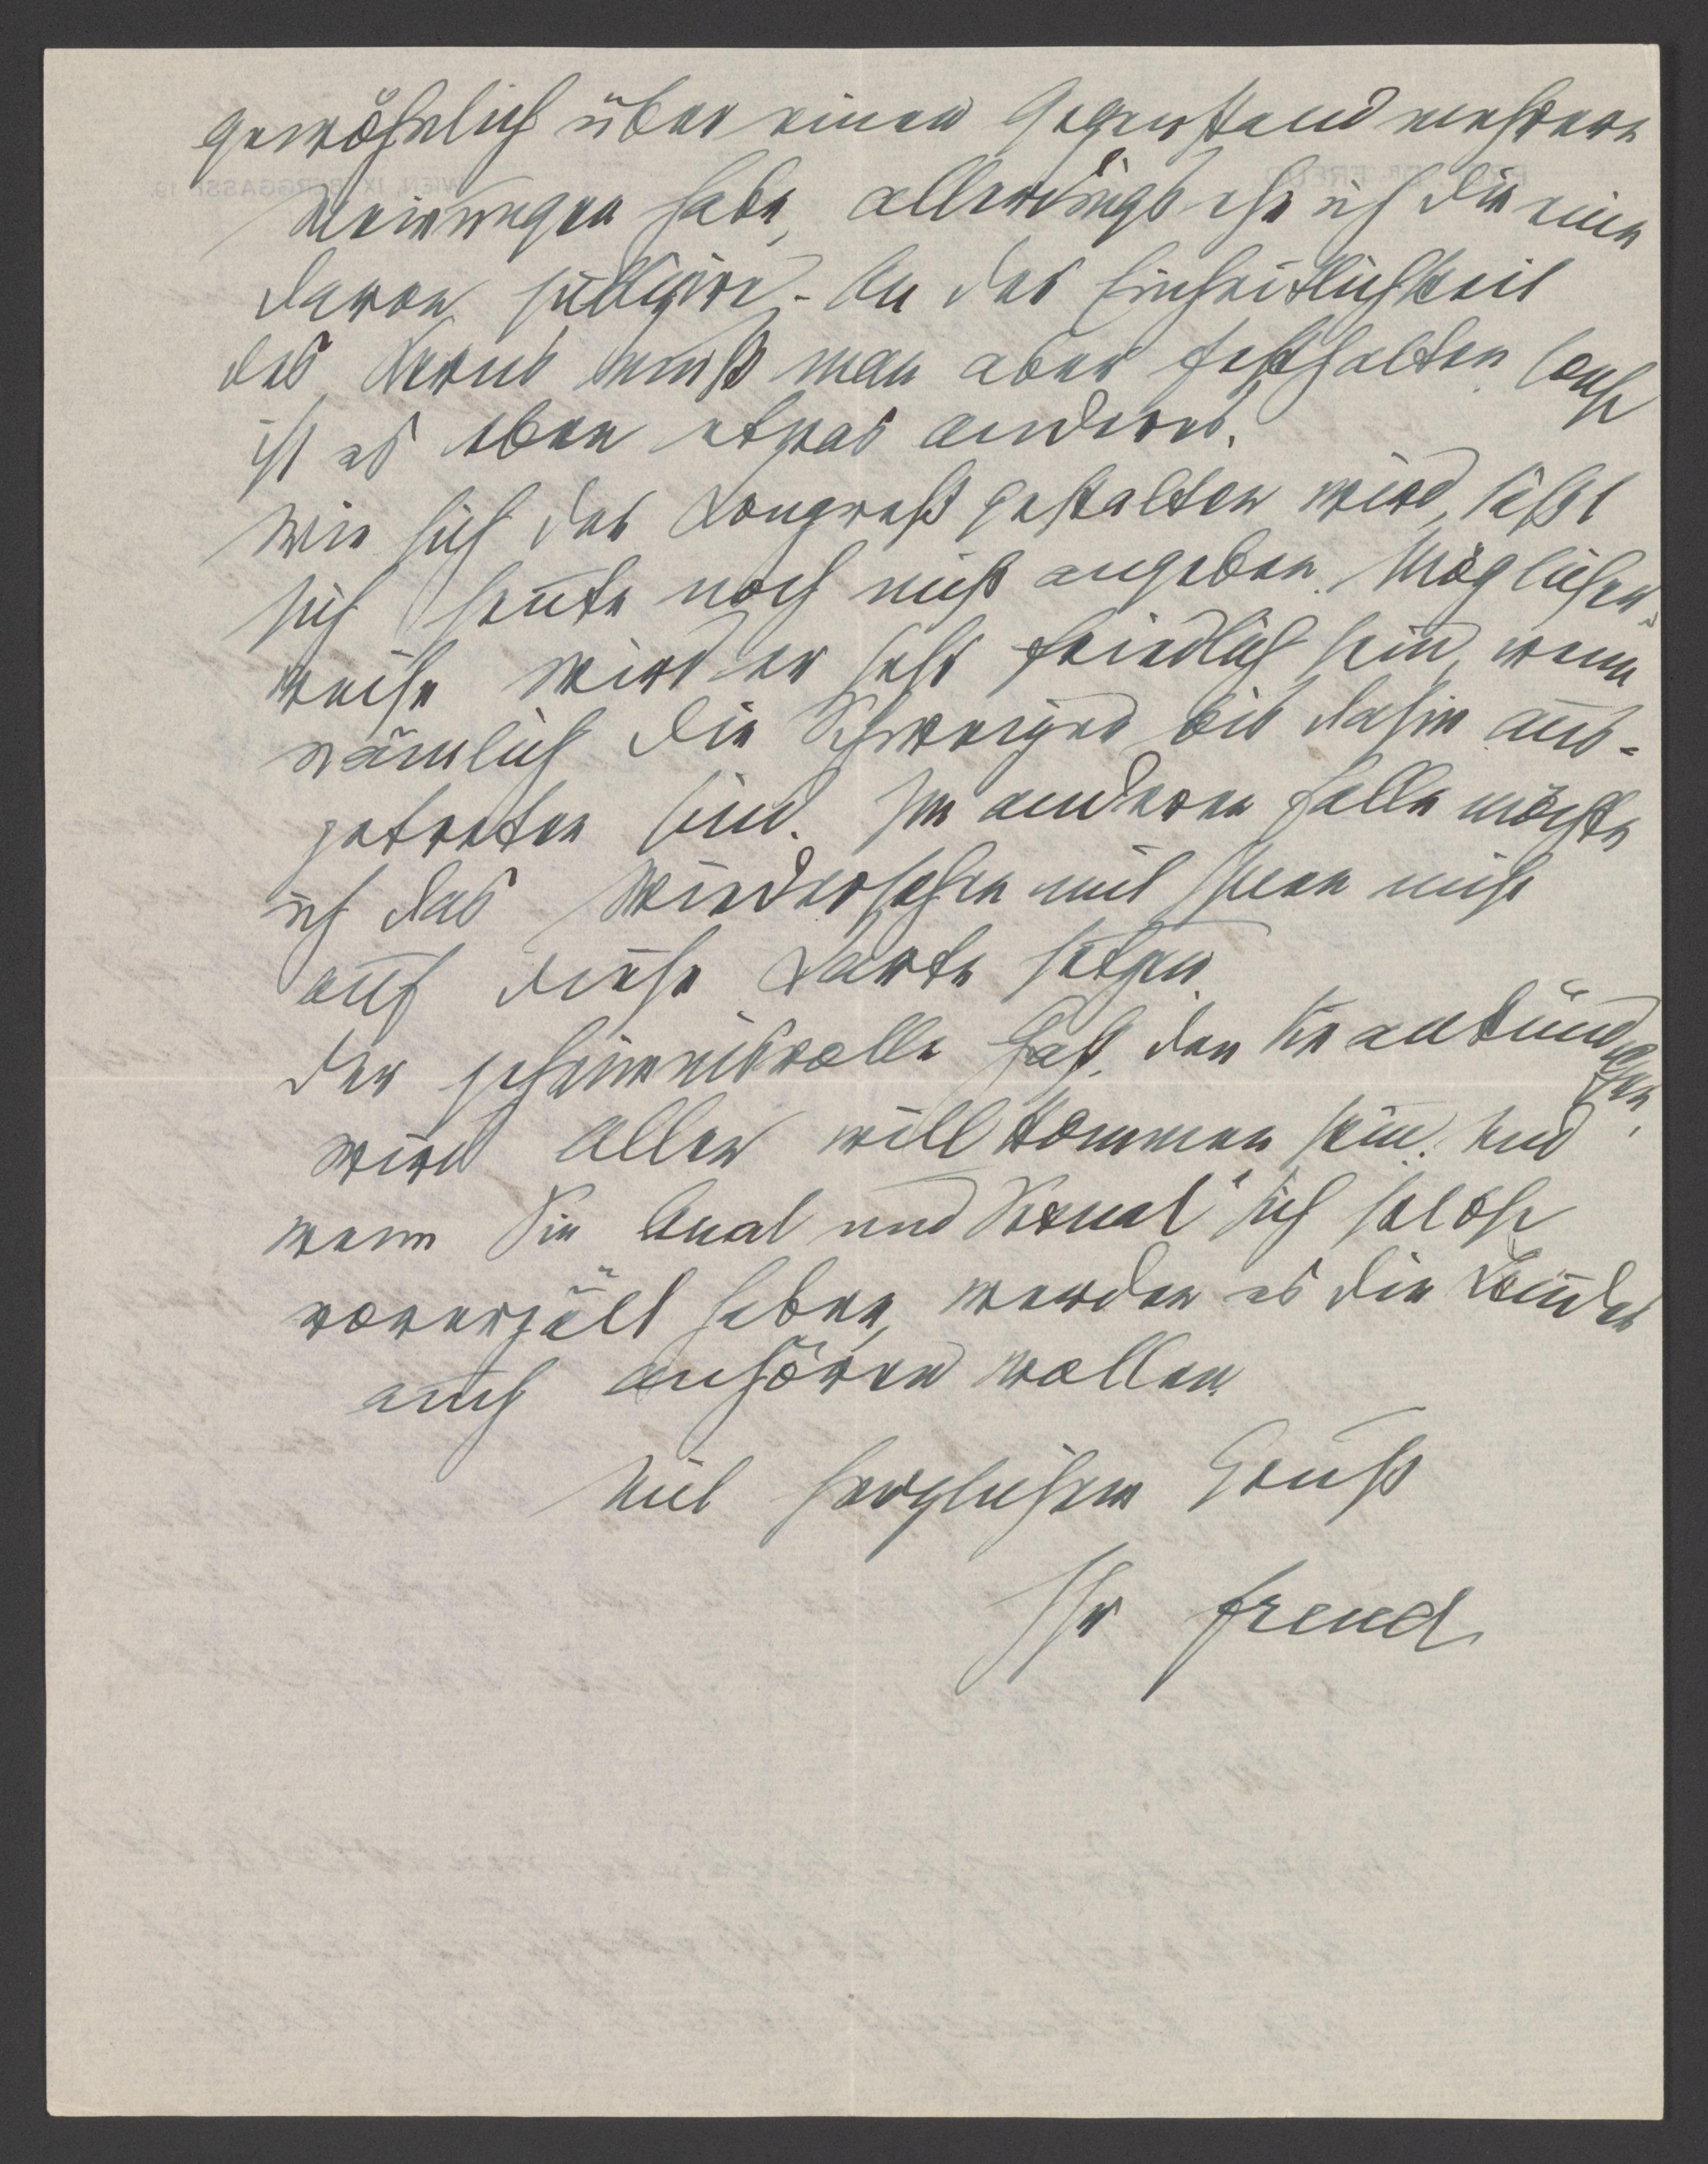 gewöhnlich über einen Gegenstand mehrere
Meinungen habe, allerdings ehe ich die eine
davon publizire. – An der Einheitlichkeit
des Kerns muß man aber festhalten, sonst
ist es eben etwas anderes.
Wie sich der Kongreß gestalten wird, läßt
sich heute noch nicht angeben. Möglicher-
weise wird er sehr friedlich sein, wenn
nämlich die Schweizer bis dahin aus-
getreten sind. Im anderen Falle möchte
ich das Wiedersehen mit Ihnen nicht
auf diese Karte setzen.
Der geheimnisvolle Gast, den Sie ankündigen,
wird allen willkommen sein. Und
wenn Sie „Anal und Sexual“ sich selbst
vorerzält haben, werden es die Kinder
auch anhören wollen.
Mit herzlichem Gruß
Ihr Freud